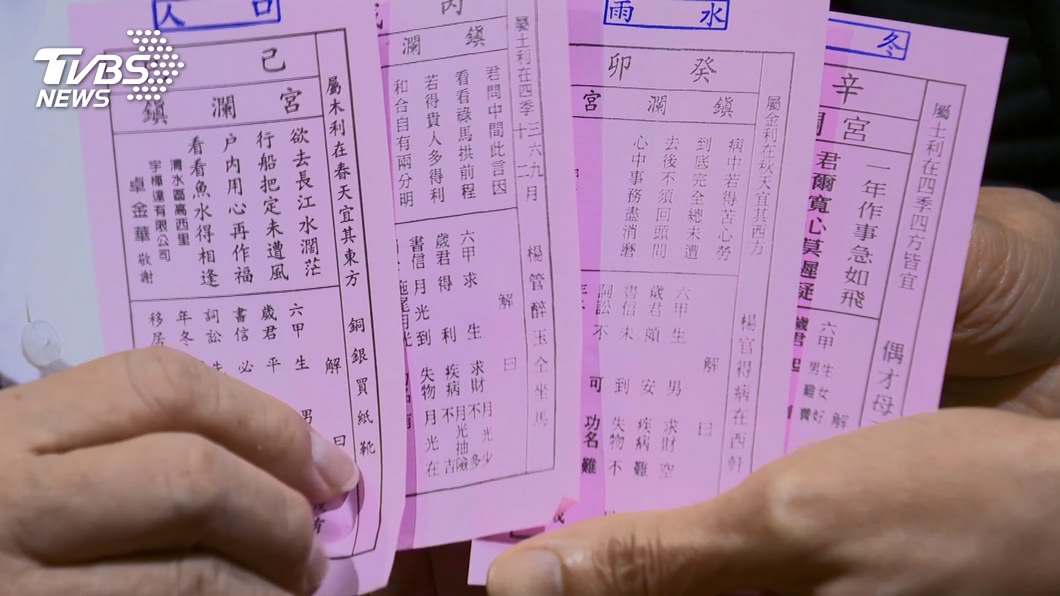 TVBS
NEWS
人口
己
鎮瀾宮
屬木利在春天宜其東方
銅銀買紙靴
欲去長江水濶茫
行船把定未遭風
户內用心再作福
看看魚水得相逢
清水區高西里
宇樺達有限公司
卓金華敬謝
解曰
六甲生男
歲君平
書信必
詞訟
年冬
移居
丙
鎮瀾
屬土利在四季三六九十二月
楊管醉玉仝坐馬
君問中間此言因
看看祿馬拱前程
若得貴人多得利
和合自有兩分明
解曰
六甲求生
歲君得利
書信月光到
求財月光不多少
疾病月光抽險
失物月光在
雨水
癸卯
鎮瀾宮
屬金利在秋天宜其西方
楊官得病在西軒
病中若得苦心勞
到底完全總未遭
去後不須回頭問
心中事務盡消磨
解曰
六甲生男
歲君頗安
書信未到
詞訟不可
求財空
疾病難
失物不
功名難
冬
辛
宮
屬土利在四季四方皆宜
偶才母
一年作事急如飛
君爾寬心莫遲疑
解
六甲
歲君